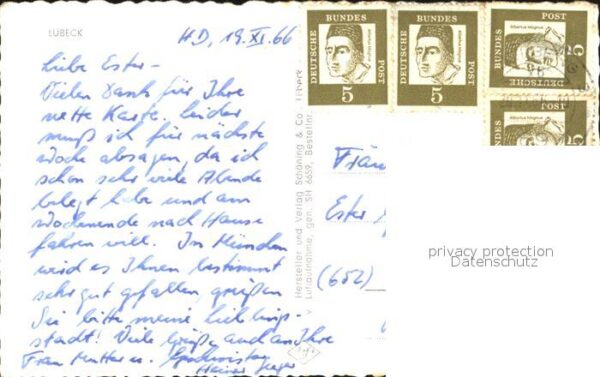 LÜBECK
HD, 19.XI.66
Liebe Ester –
Vielen Dank für Ihre
nette Karte. Leider
muß ich für nächste
Woche absagen, da ich
schon sehr viele Abende
belegt habe und am
Wochenende nach Hause
fahren will. In München
wird es Ihnen bestimmt
sehr gut gefallen, grüßen
Sie bitte meine Lieblings-
stadt! Viele Grüße, auch an Ihre
Frau Mutter u.
Hersteller und Verlag Schöning & Co., Lübeck
v. Luftaufnahme, gen. SH 6659, Bestellnr.
DEUTSCHE BUNDES POST 5
DEUTSCHE BUNDES POST 5
Albertus Magnus DEUTSCHE BUNDES POST 5
Albertus Magnus POST 5
Fräu
Ester
(652)
privacy protection
Datenschutz